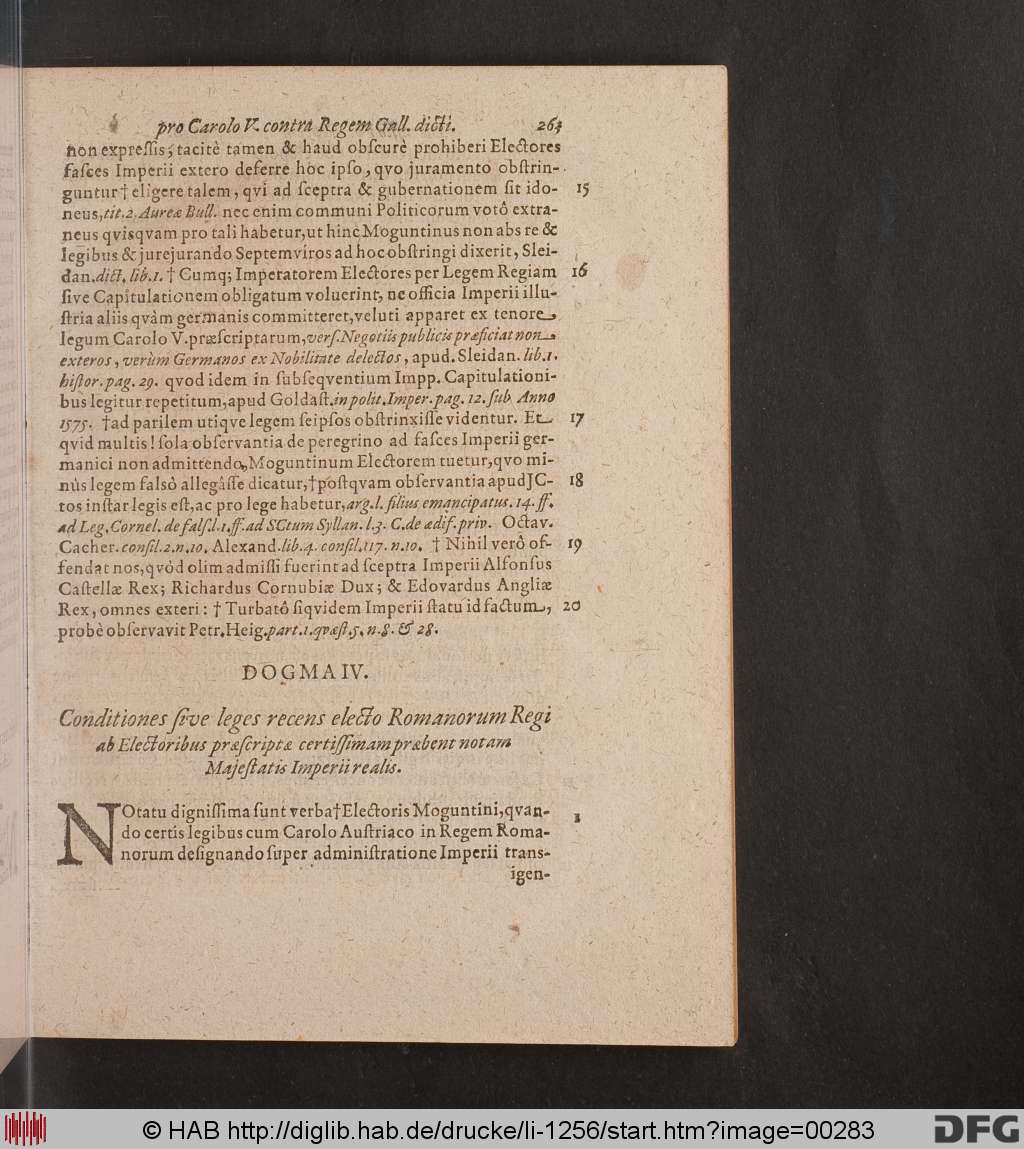 pro Carolo V. contra Regem Gall. dicti. 263
non expreſſis; tacitè tamen & haud obſcurè prohiberi Electores
faſces Imperii extero deferre hoc ipſo, qvo juramento obſtrin-
guntur† eligere talem, qvi ad ſceptra & gubernationem ſit ido- 15
neus, tit. 2. Aureæ Bull. nec enim communi Politicorum votô extra-
neus qvisqvam pro tali habetur, ut hinc Moguntinus non abs re &
legibus & jurejurando Septemviros ad hoc obſtringi dixerit, Slei-
dan. dict. lib. 1. † Cumq; Imperatorem Electores per Legem Regiam 16
ſive Capitulationem obligatum voluerint, ne officia Imperii illu-
ſtria aliis qvàm germanis committeret, veluti apparet ex tenore
legum Carolo V. præſcriptarum, verſ. Negotiis publicis præficiat non
exteros, verùm Germanos ex Nobilitate delectos, apud. Sleidan. lib. 1.
hiſtor. pag. 29. qvod idem in ſubſeqventium Impp. Capitulationi-
bus legitur repetitum, apud Goldaſt. in polit. Imper. pag. 12. ſub Anno
1575. †ad parilem utiqve legem ſeipſos obſtrinxiſſe videntur. Et 17
qvid multis! ſola obſervantia de peregrino ad faſces Imperii ger-
manici non admittendo, Moguntinum Electorem tuetur, qvo mi-
nùs legem falsò allegâſſe dicatur, †poſtqvam obſervantia apud JC- 18
tos inſtar legis eſt, ac pro lege habetur, arg. l. filius emancipatus. 14. ff.
ad Leg. Cornel. de falſ. l. 1. ff. ad SCtum Syllan. l. 3. C. de ædif. priv. Octav.
Cacher. conſil. 2. n. 10. Alexand. lib. 4. conſil. 117. n. 10. † Nihil verô of- 19
fendat nos, qvòd olim admiſſi fuerint ad ſceptra Imperii Alfonſus
Caſtellæ Rex; Richardus Cornubiæ Dux; & Edovardus Angliæ
Rex, omnes exteri: † Turbatô ſiqvidem Imperii ſtatu id factum, 20
probè obſervavit Petr. Heig. part. 1. qvæſt. 5. n. 8. & 28.
DOGMA IV.
Conditiones ſive leges recens electo Romanorum Regi
ab Electoribus præſcriptæ certiſſimam præbent notam
Majeſtatis Imperii realis.
NOtatu digniſſima ſunt verba† Electoris Moguntini, qvan- 1
do certis legibus cum Carolo Auſtriaco in Regem Roma-
norum deſignando ſuper adminiſtratione Imperii trans-
igen-
© HAB http://diglib.hab.de/drucke/li-1256/start.htm?image=00283
DFG